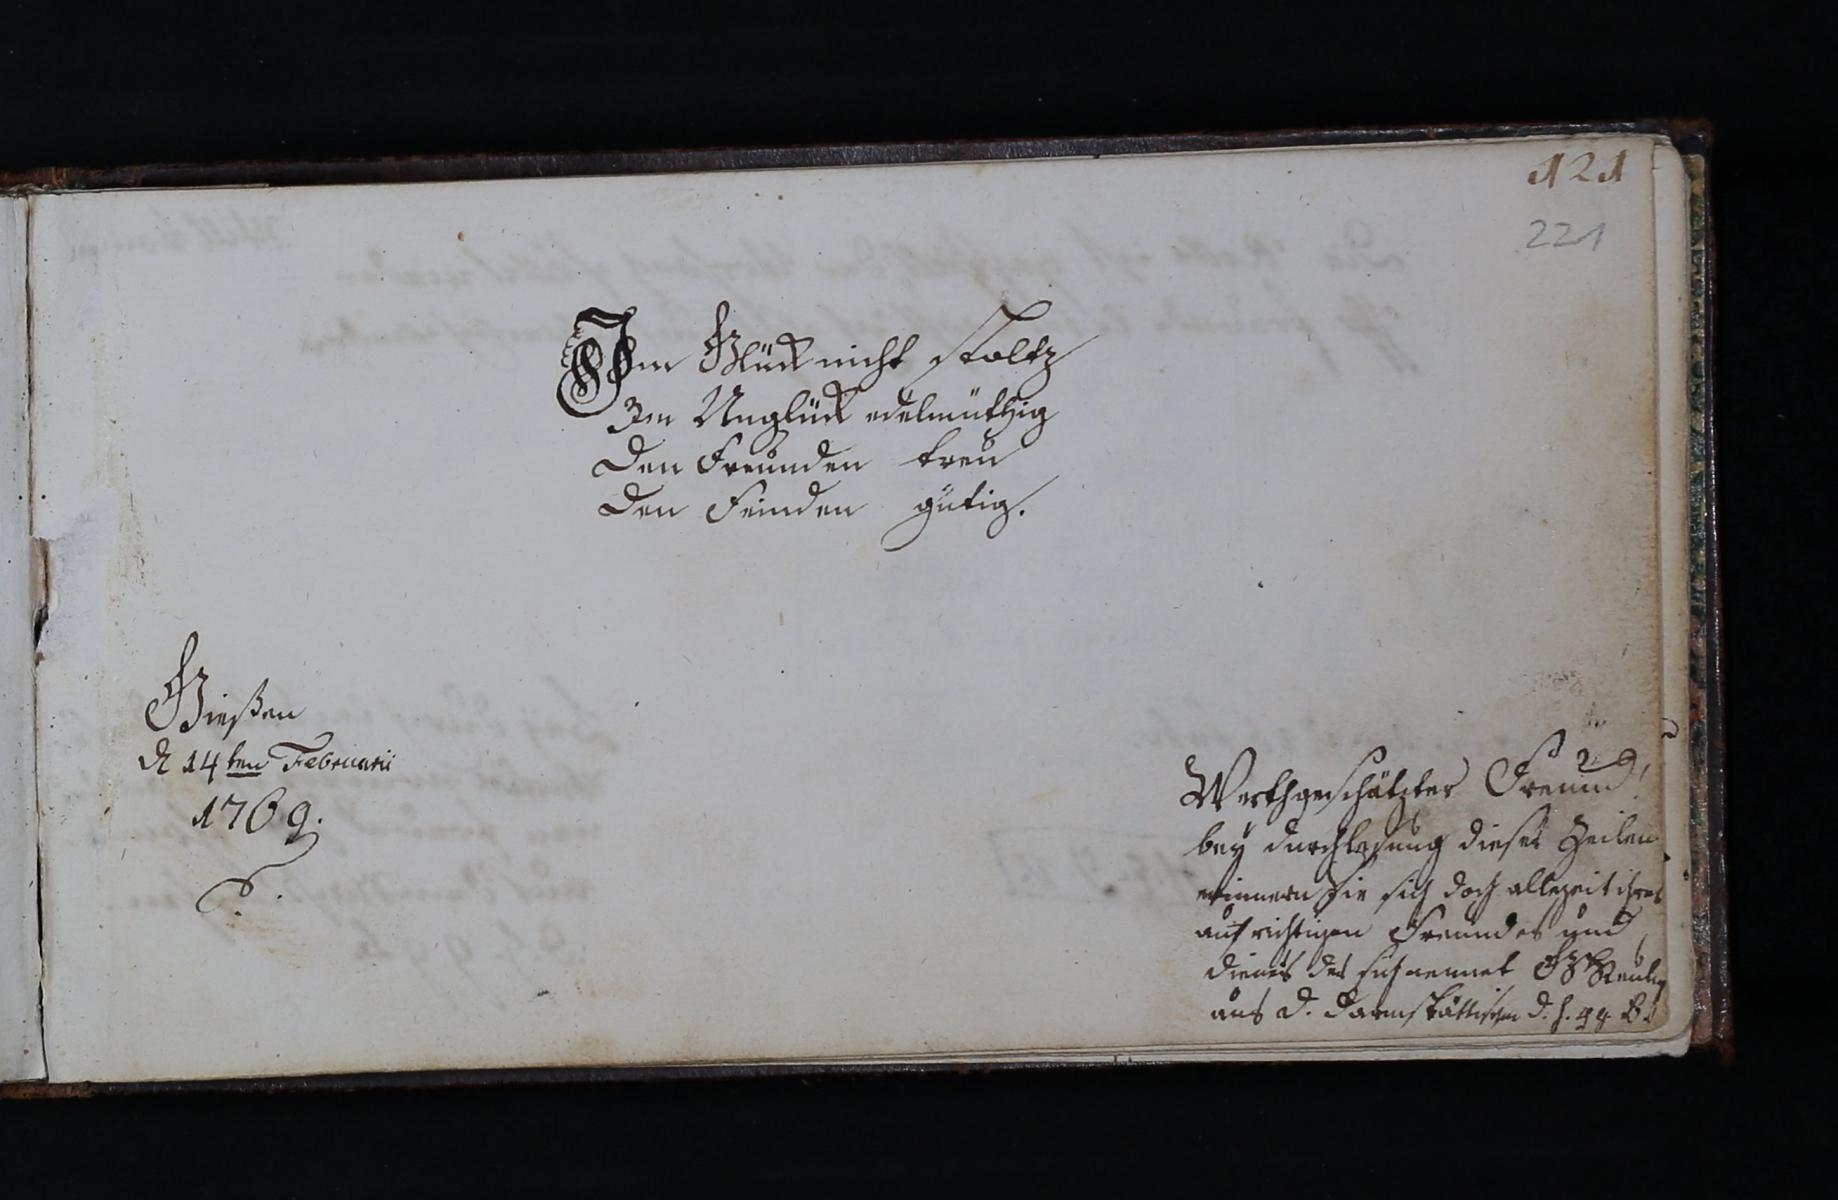 121
221
Im Glück nicht stoltz
Im Unglück edelmüthig
Den Freunden treu
Den Feinden gütig.
Gießen
d 14ten Februarii
1769.
Werthgeschätzter Freund,
bey durchlesung dieser Zeilen
erinnern sie sich doch allezeit ihres
aufrichtigen Freundes und
dieners der sich nennet
aus d. Darmstättischen d.